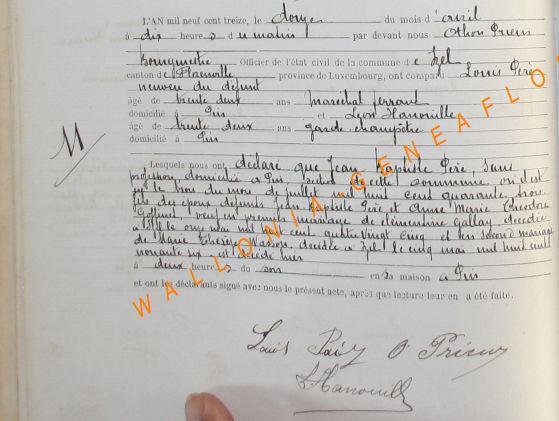 L'AN mil neuf cent treize, le douze du mois d'avril
à dix heures du matin par devant nous Othon Prieur
Bourgmestre Officier de l'état civil de la commune de Izel
canton de Florenville, province de Luxembourg, ont comparu Louis Péré
neveu du défunt
âgé de trente deux ans maréchal ferrant
domicilié à Pin et Léon Hanouille
âgé de trente deux ans garde champêtre
domicilié à Pin
M
Lesquels nous ont déclaré que Jean Baptiste Péré, sans
profession domicilié à Pin section de cette commune, où il est
né le trois du mois de juillet mil huit cent quarante trois
fils des époux défunts Jean Baptiste Péré et Anne Marie Théodore
veuf en premier mariage de Clémentine Gallay, décédée
à le onze mai mil huit cent quatre vingt cinq et en second mariage
de Marie Thérèse Wasson, décédée à Izel le cinq mai mil huit cent
nonante six est décédé hier
à deux heures du soir en sa maison à Pin
et ont les déclarants signé avec nous le présent acte, après que lecture leur en a été faite.
Louis Péré O Prieur
LHanouille
WALLONIA-GENEAFLO